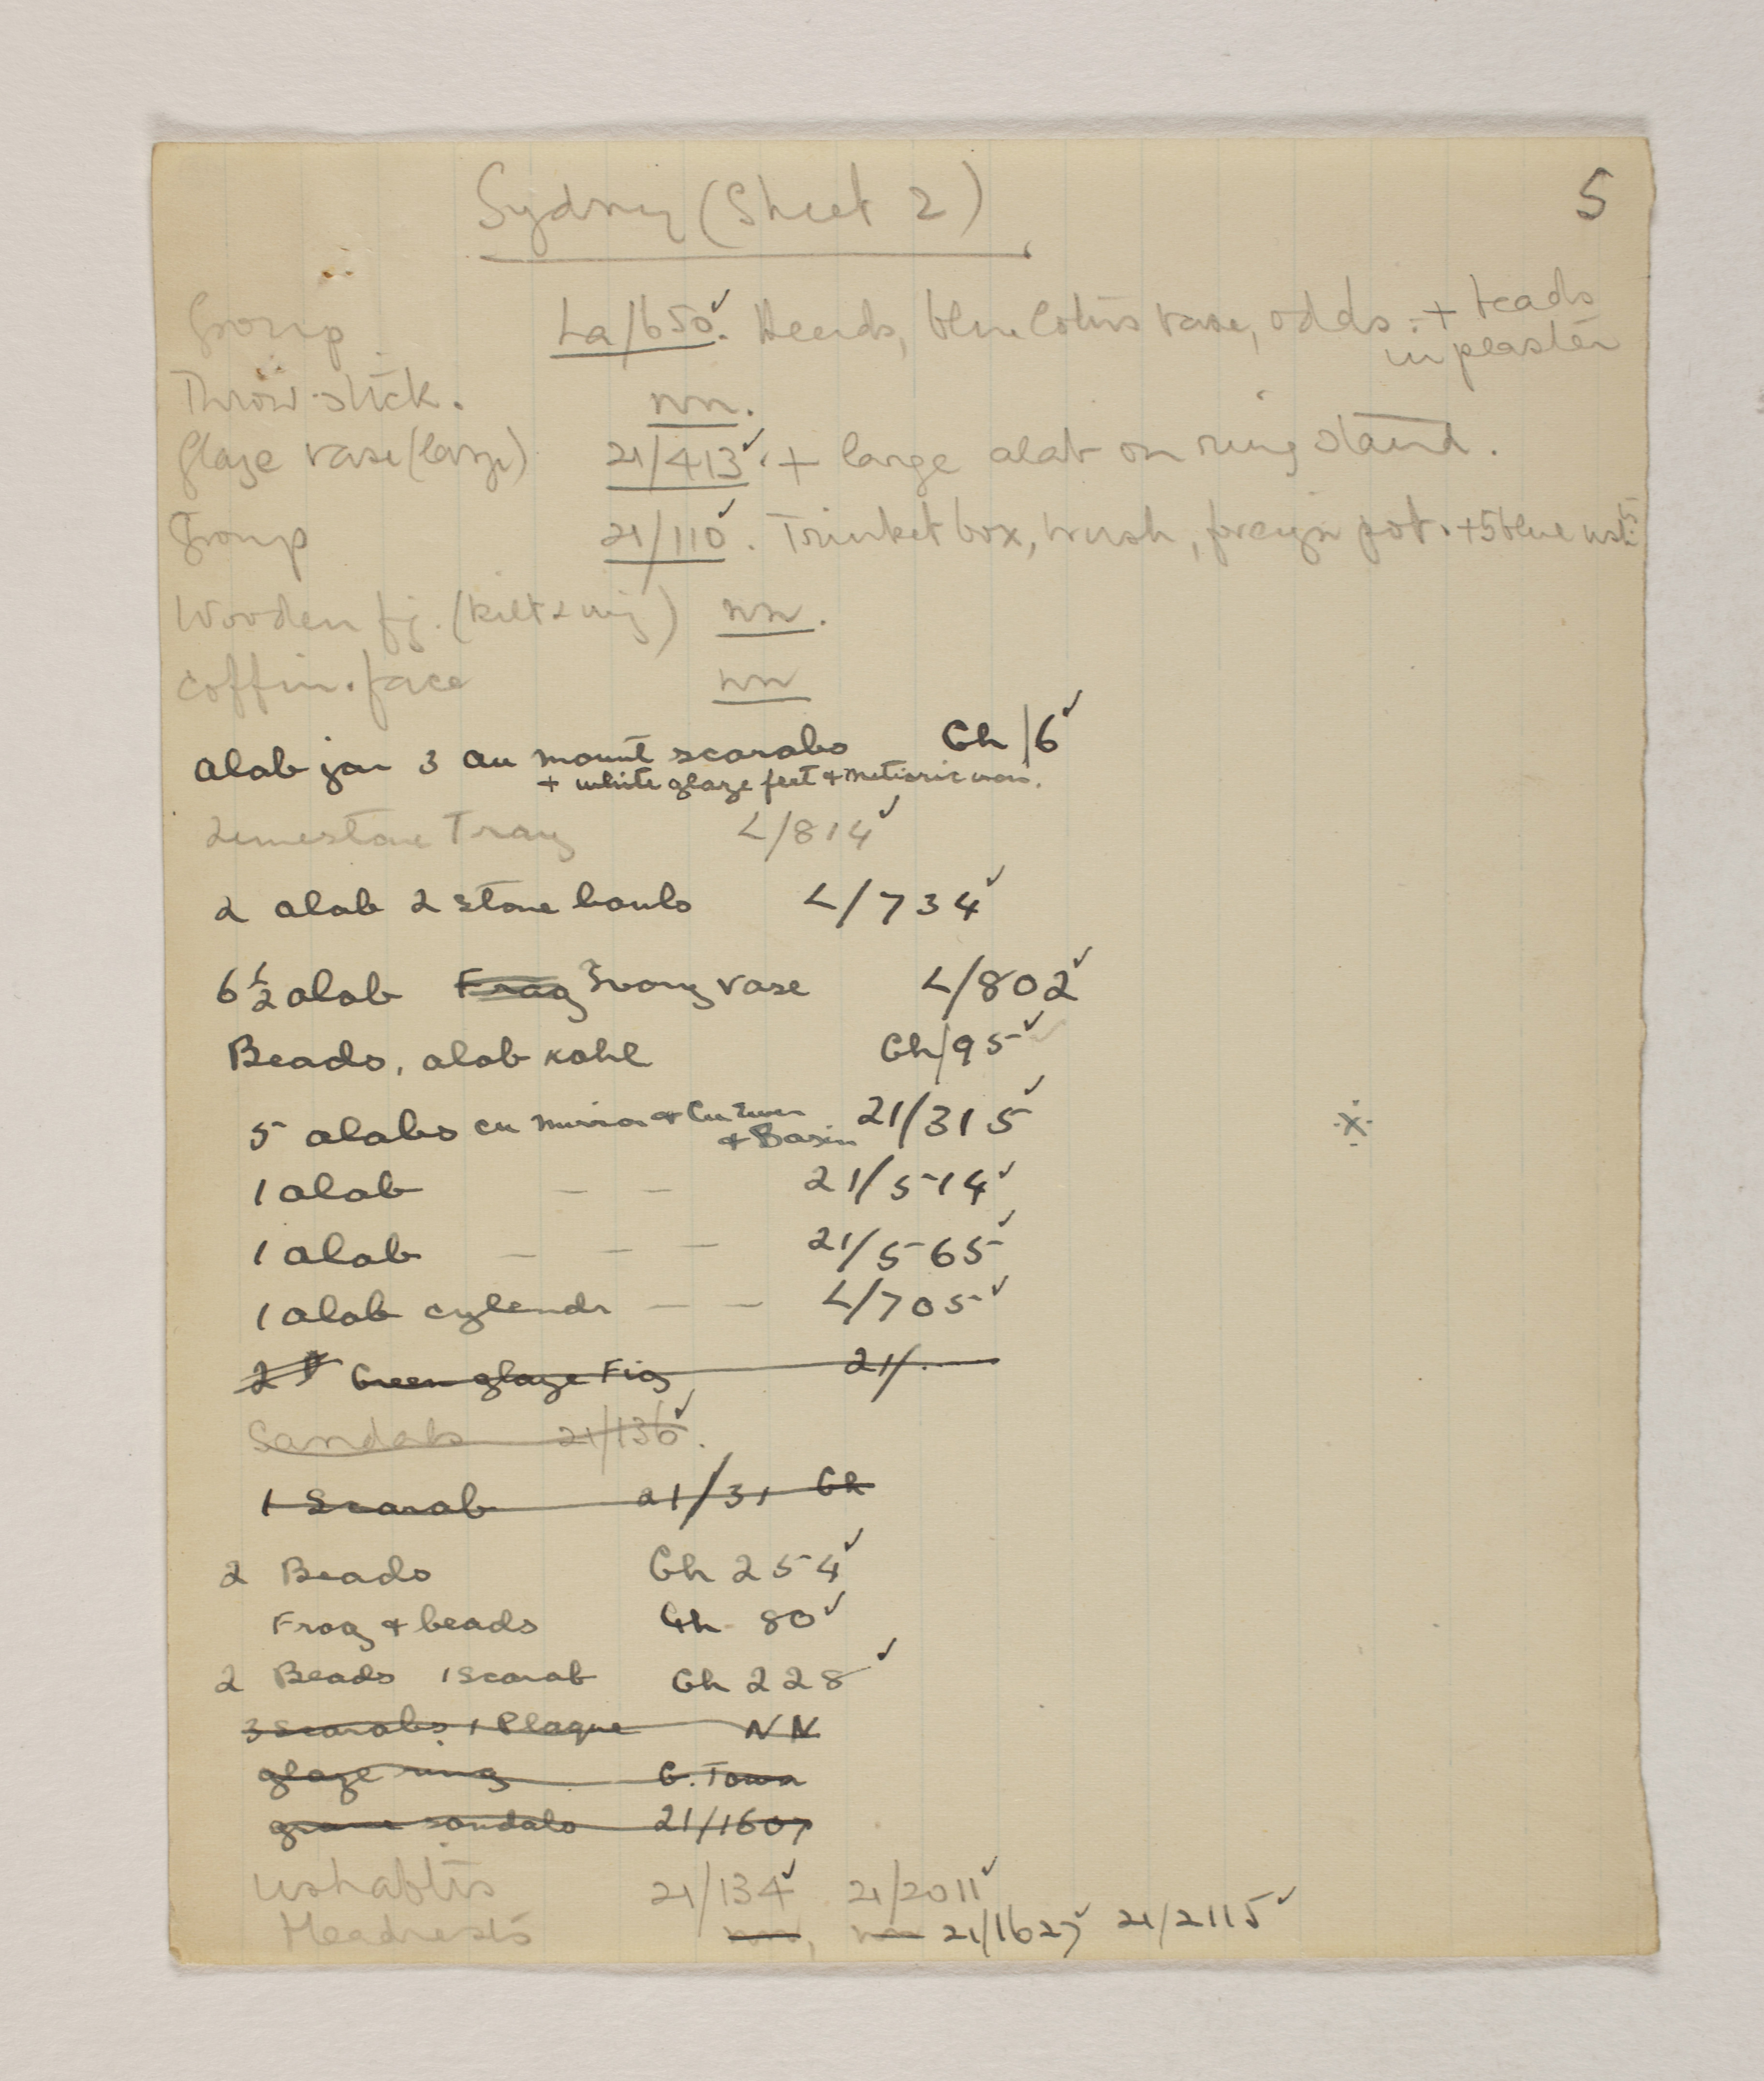 Sydney (Sheet 2)
5
Group La/650 ✓. Heads, blue lotus vase, odds. + heads
in plaster
Throw-stick. nn.
Glaze vase (large) 21/413 ✓. + large alab on ring stand.
Group 21/110 ✓. Trinket box, brush, foreign pot. + 5 blue
Wooden fig. (kilt & wig) nn.
Coffin.face nn
Alab jar 3 au mount scarabs Gh/6 ✓
+ white glaze feet & meteoric iron.
Limestone Tray L/814 ✓
2 alab 2 stone bowls L/734 ✓
6 1/2 alab Frag Ivory vase L/802 ✓
Beads, alab kohl Gh/95 ✓
5 alabs cu mirror & Cu Ewer 21/315 ✓
& Basin
1 alab – – 21/514 ✓
1 alab – – – 21/565 ✓
1 alab cylendr – – L/705 ✓
2 Green glaze Fig 21/.
Sandals 21/136 ✓.
1 Scarab 21/31 Gh
2 Beads Gh 254 ✓
Frog & beads Gh 80 ✓
2 Beads 1 scarab Gh 228 ✓
3 scarabs 1 Plaque NN
glaze ring G. Town
grave sandals 21/1607
Ushabtis 21/134 ✓ 21/2011 ✓
Headrests nn, nn 21/1627 ✓ 21/2115 ✓